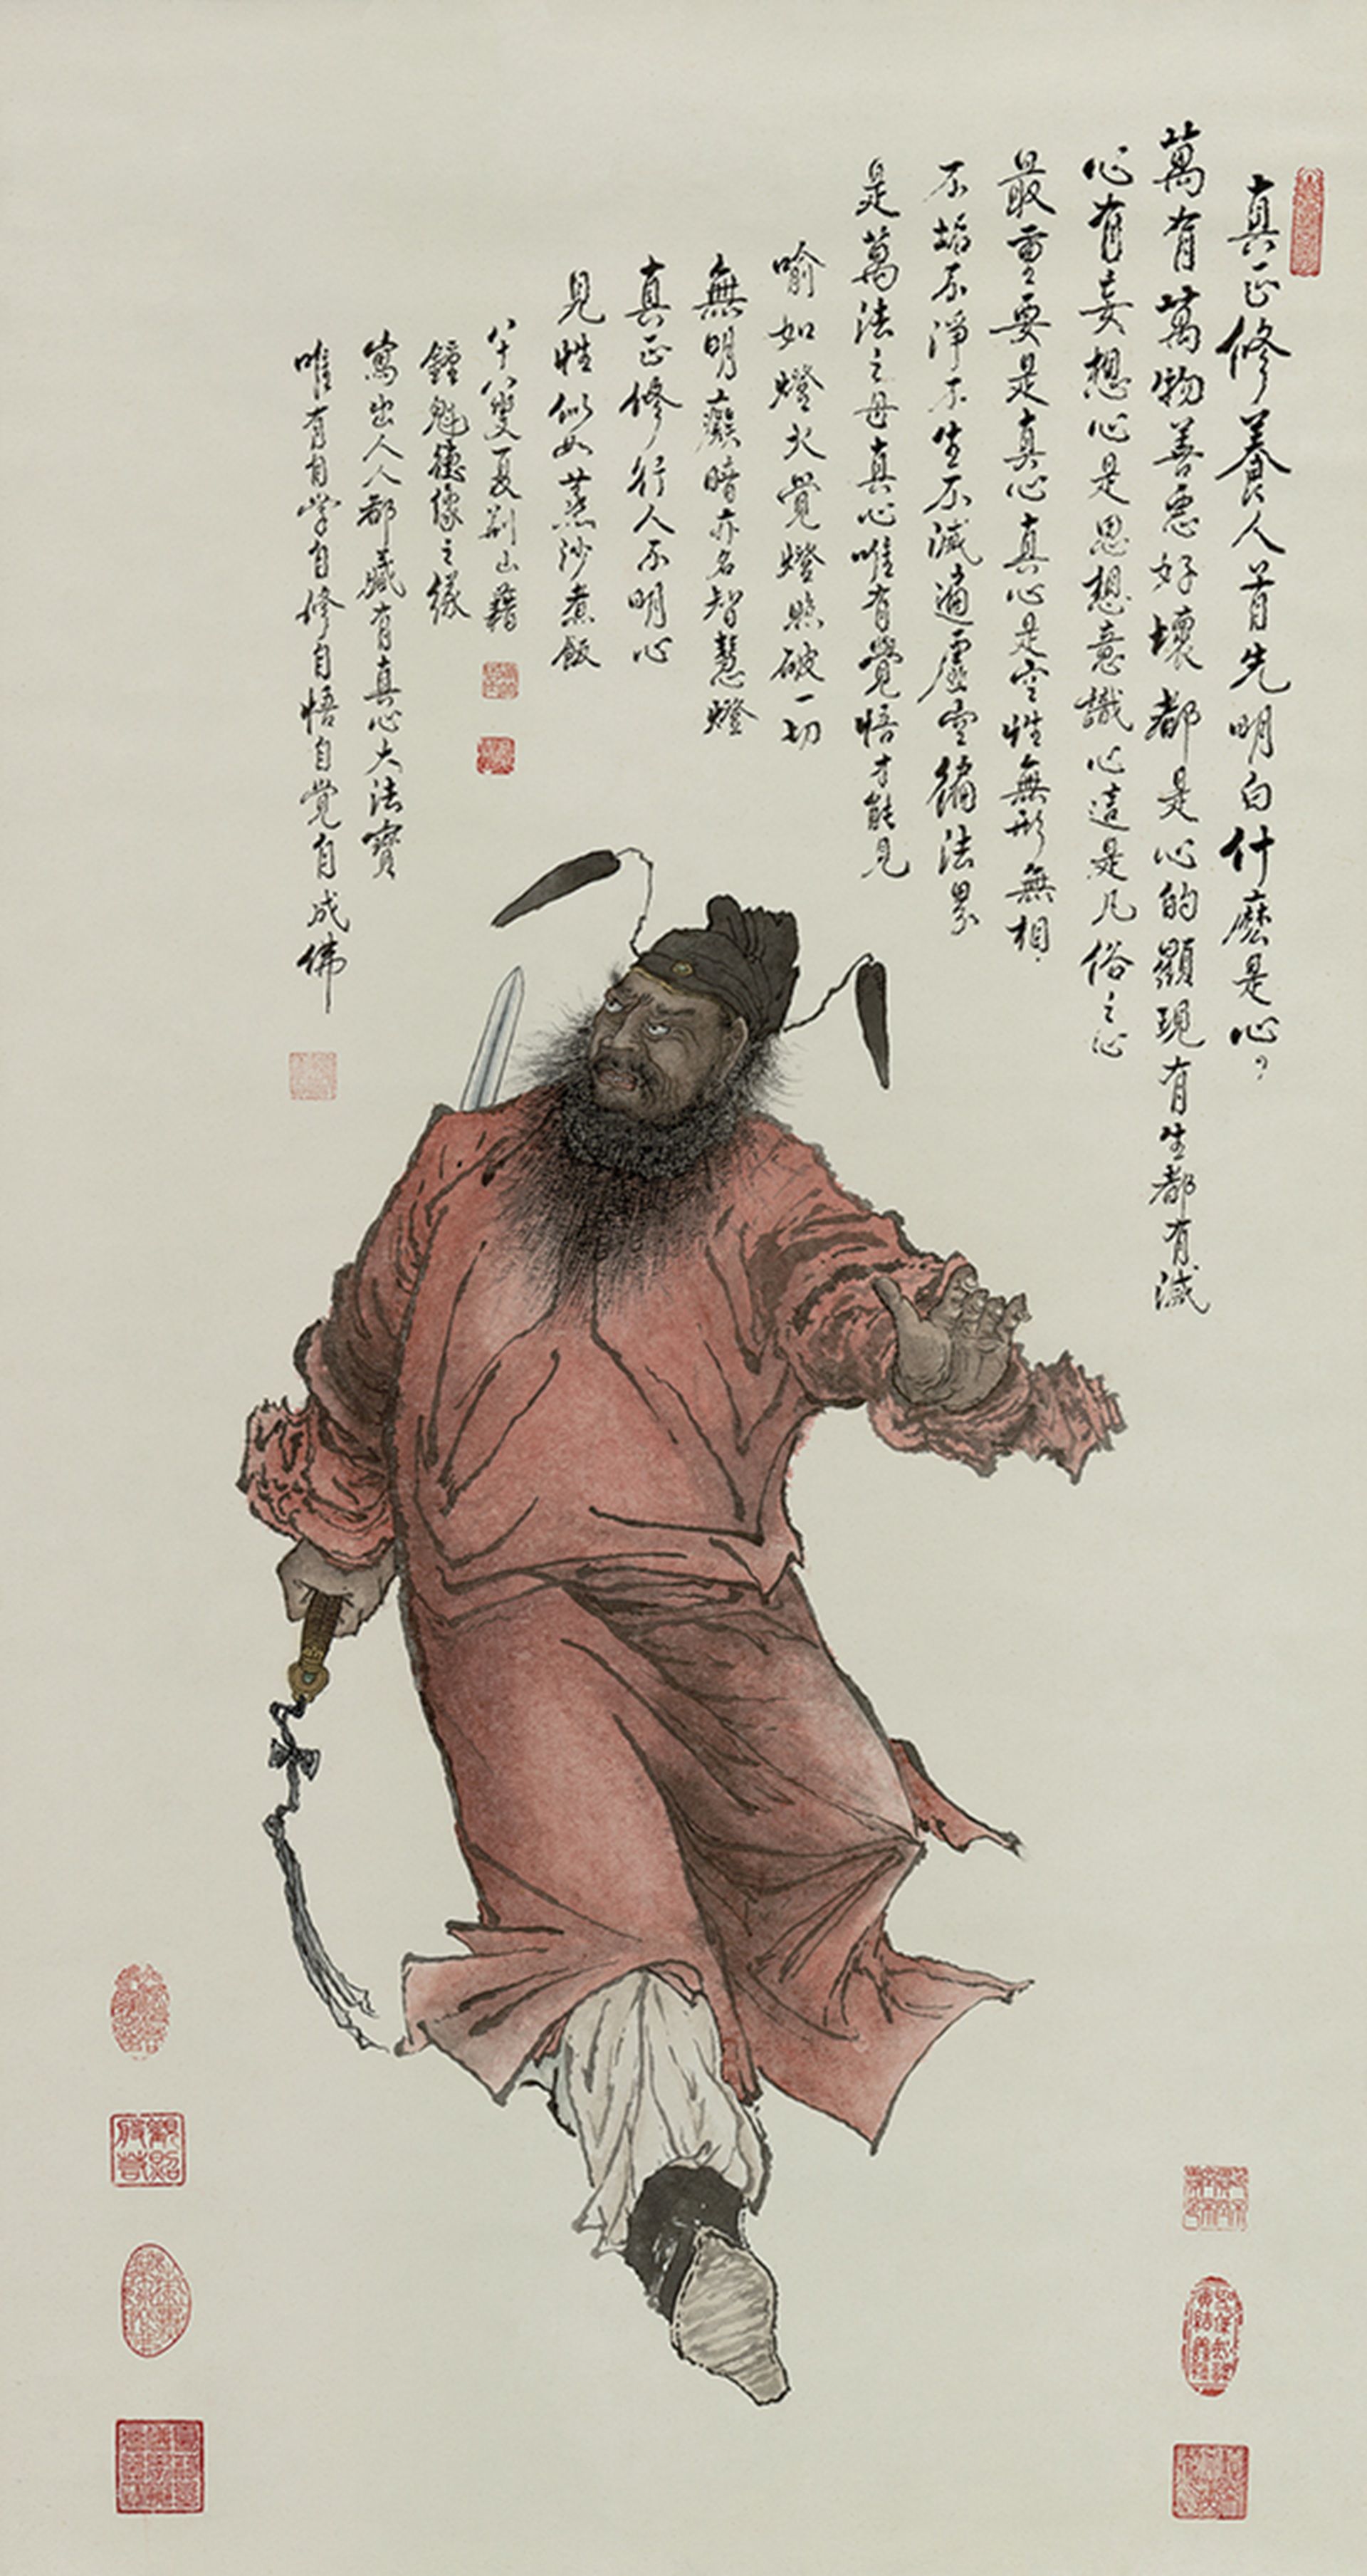 真正修養人首先明白什麽是心？
萬有萬物善惡好壞都是心的顯現有生都有滅
心有妄想心是思想意識心這是凡俗之心
最重要是真心真心是空性無形無相.
不垢不淨不生不滅遍虛空徧法界
是萬法之母真心唯有覺悟才能見
喻如燈火覺燈照破一切
無明癡暗亦名智慧燈
真正修行人不明心
見性似如蒸沙煮飯
八十八叟夏荆山藉
鍾魁德像之緣
寫出人人都藏有真心大法寶
唯有自学自修自悟自覚自成佛
觀照
般若